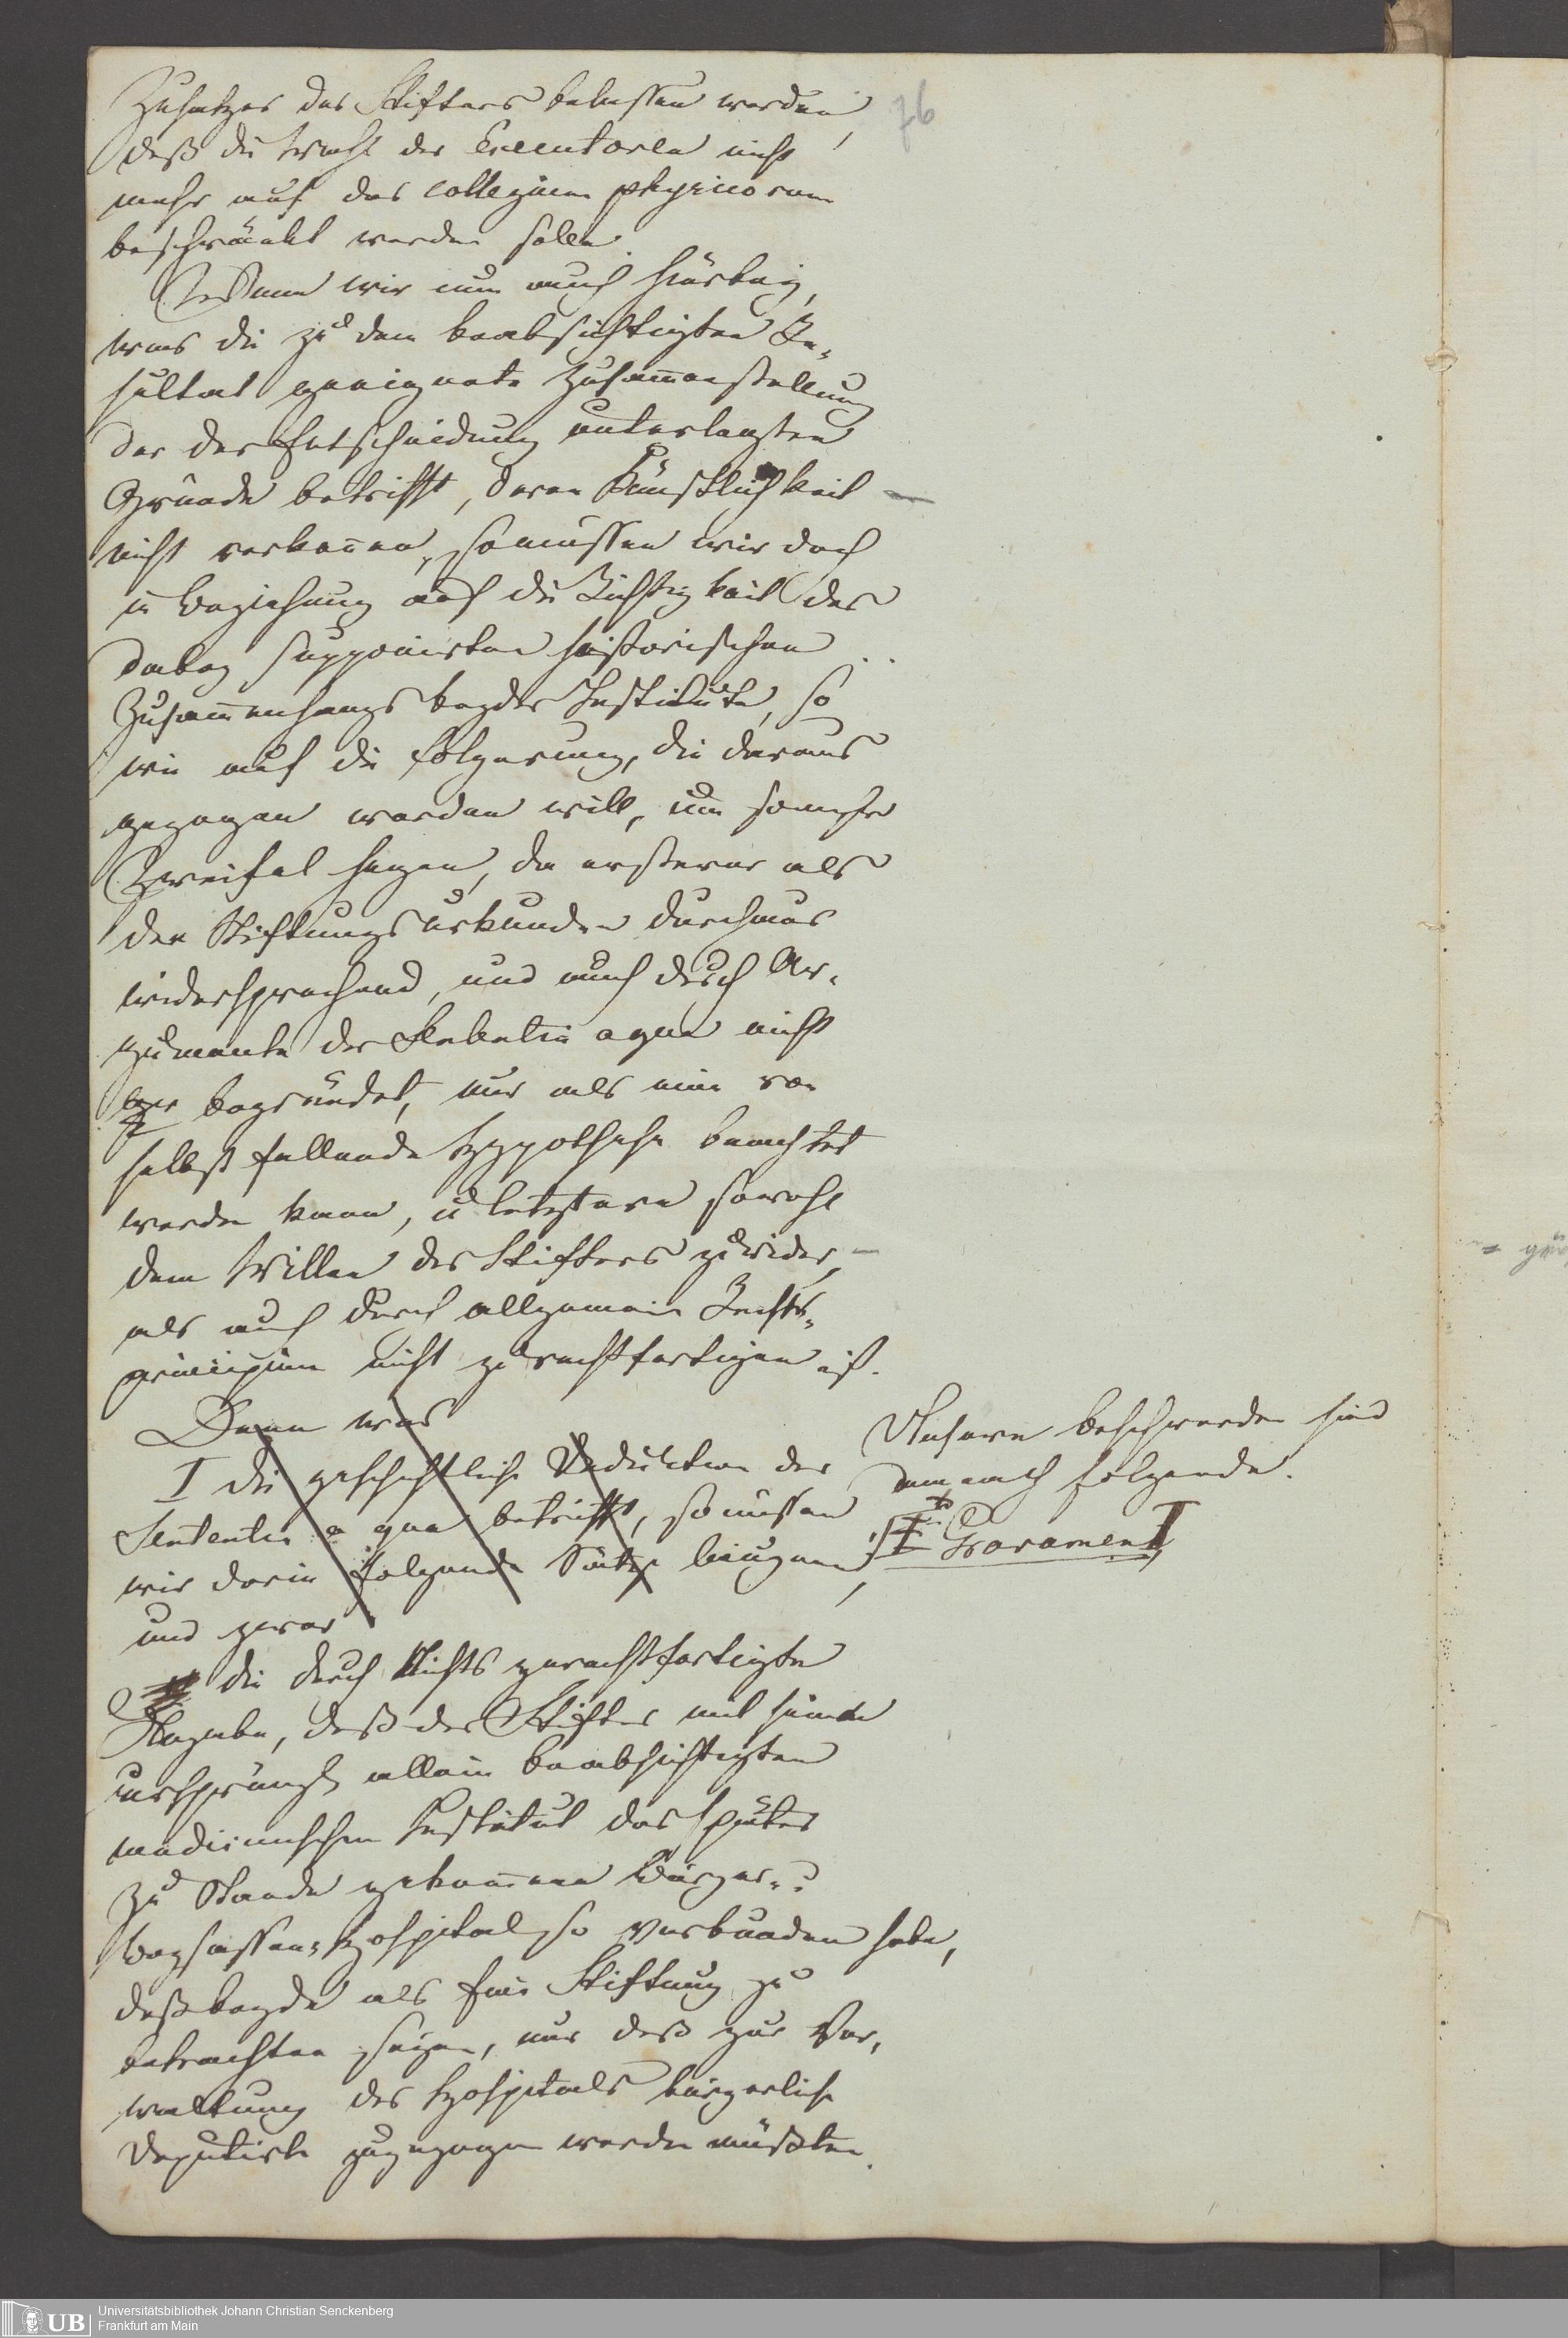 76
Zusatzes des Stifters belassen werden,
daß die Wahl der Executoren nicht
mehr auf das collegium physicorum
beschränkt werden solle.
wir nun auch hierbey,
was die zu dem beabsichtigten Re-
sultat geeignete Zusam̅enstellung
der der Entscheidung unterlegten
Gründe betrifft, deren Künstlichkeit
nicht verken̅en, so müssen wir doch
in Beziehung auf die Richtigkeit des
dabey supponirten historischen
Zusam̅enhangs beyder Institute, so
wie auf die Folgerung, die daraus
gezogen werden will, um so mehr
Zweifel hegen, da ersterer als
den Stiftungsurkunden durchaus
widersprechend, und auch durch Ar-
gumente der Sententia a qua nicht
begründet, nur als eine von
selbst fallende Hypothese betrachtet
werden kann, u letztere sowohl
dem Willen des Stifters zuwider,
als auch durch allgemeine Rechts-
principien nicht zu rechtfertigen ist.
Denn was
I die geschichtliche Deduktion der
Sententia a qua betrifft, so müssen
wir darin folgende Sätze läugnen,
und zwar
Unsere Beschwerden sind
demnach folgende.
Ites Gravamen I
die durch Nichts gerechtfertigte
Angabe, daß der Stifter mit seinem
ursprüngl allein beabsichtigten
medicinischen Institut das später
zu Stande gekom̅ene Bürger- u
Beysassen-Hospital so verbunden habe,
daß beyde als Eine Stiftung zu
betrachten seyen, nur daß zur Ver-
waltung des Hospitals bürgerliche
Deputirte zugezogen werden müßten.
Universitätsbibliothek Johann Christian Senckenberg
Frankfurt am Main
UB